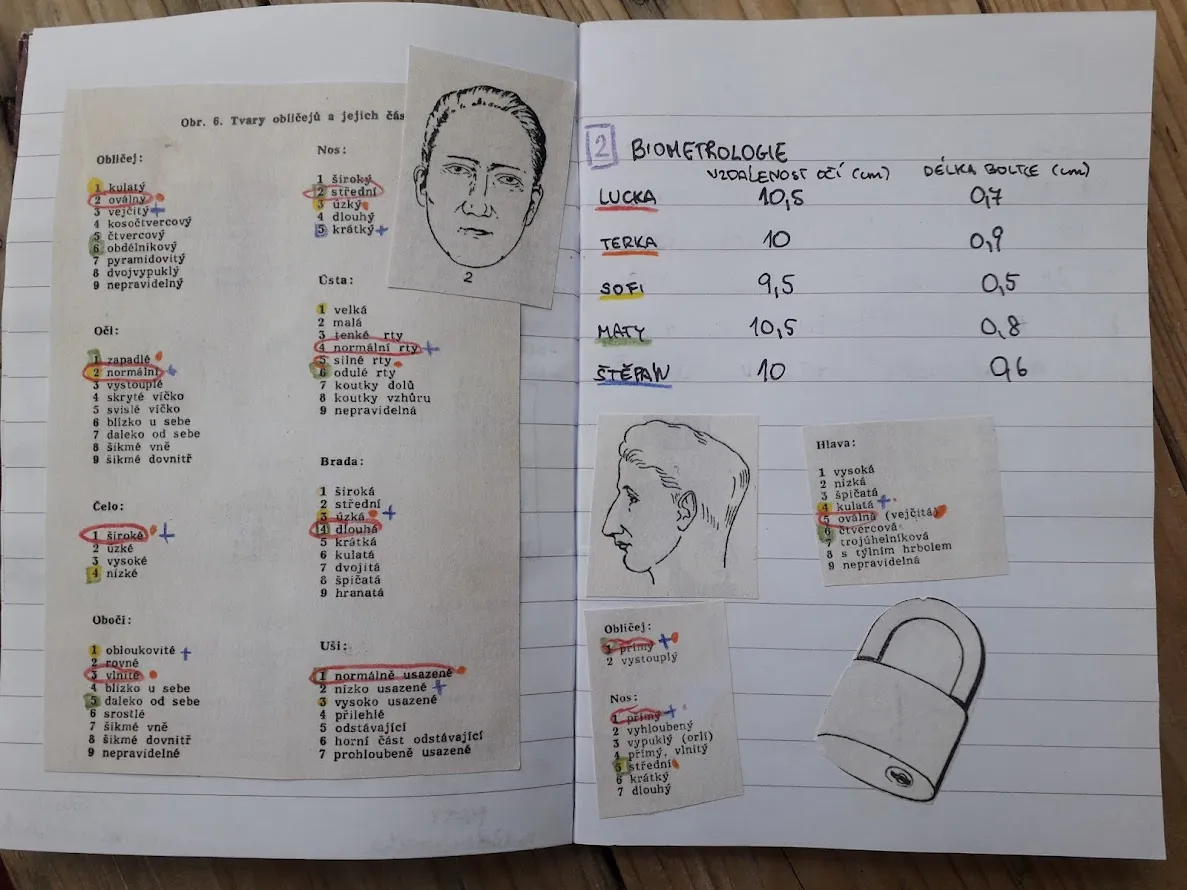 Obr. 6. Tvary obličejů a jejich čás
Obličej:
1 kulatý
2 oválný
3 vejčitý
4 kosočtvercový
5 čtvercový
6 obdélníkový
7 pyramidovitý
8 dvojvypuklý
9 nepravidelný
Oči:
1 zapadlé
2 normální
3 vystouplé
4 skryté víčko
5 svislé víčko
6 blízko u sebe
7 daleko od sebe
8 šikmé vně
9 šikmé dovnitř
Čelo:
1 široké
2 úzké
3 vysoké
4 nízké
Obočí:
1 obloukovité
2 rovné
3 vlnité
4 blízko u sebe
5 daleko od sebe
6 srostlé
7 šikmé vně
8 šikmé dovnitř
9 nepravidelné
Nos:
1 široký
2 střední
3 úzký
4 dlouhý
5 krátký
Ústa:
1 velká
2 malá
3 tenké rty
4 normální rty
5 silné rty
6 odulé rty
7 koutky dolů
8 koutky vzhůru
9 nepravidelná
Brada:
1 široká
2 střední
3 úzká
4 dlouhá
5 krátká
6 kulatá
7 dvojitá
8 špičatá
9 hranatá
Uši:
1 normálně usazené
2 nízko usazené
3 vysoko usazené
4 přilehlé
5 odstávající
6 horní část odstávající
7 prohloubeně usazené
2
2 BIOMETROLOGIE
VZDALENOST OČÍ (cm) DÉLKA BOLTCE (cm)
LUCKA 10,5 0,7
TERKA 10 0,9
SOFI 9,5 0,5
MATY 10,5 0,8
ŠTĚPÁN 10 0,6
Hlava:
1 vysoká
2 nízká
3 špičatá
4 kulatá
5 oválná (vejčitá)
6 čtvercová
7 trojúhelníková
8 s týlním hrbolem
9 nepravidelná
Obličej:
1 přímý
2 vystouplý
Nos:
1 přímý
2 vyhloubený
3 vypuklý (orlí)
4 přímý, vlnitý
5 střední
6 krátký
7 dlouhý